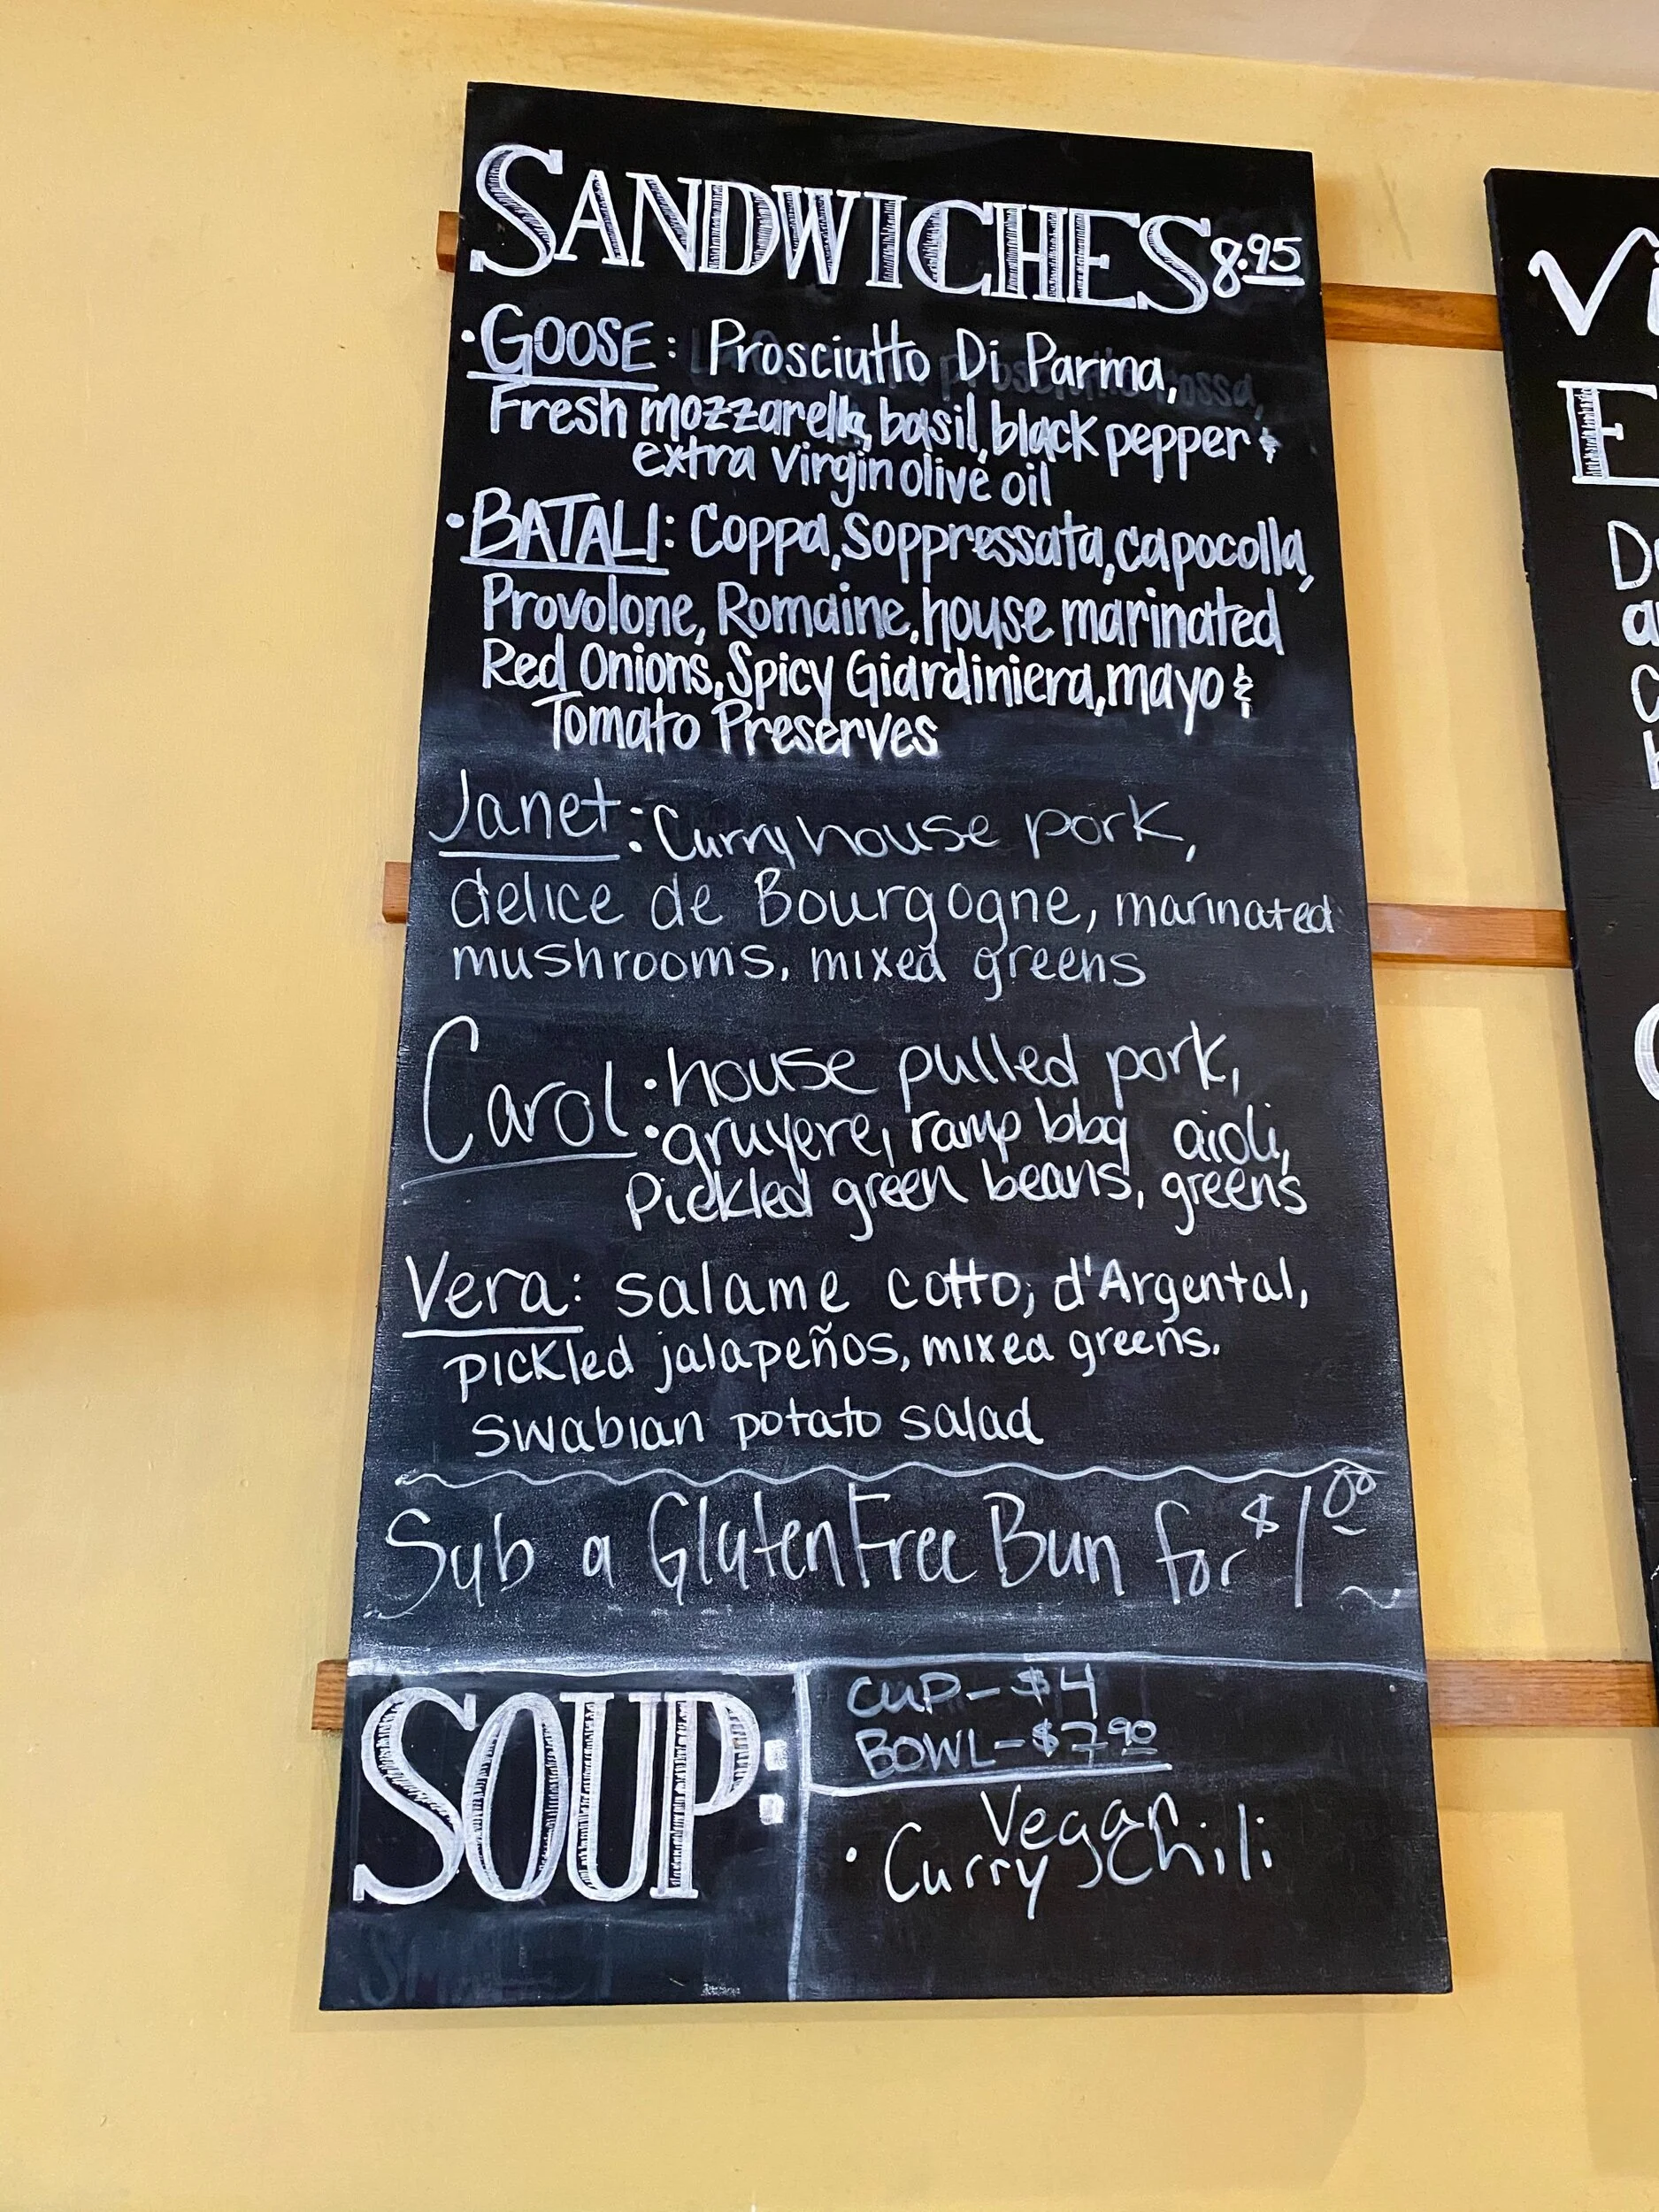 SANDWICHES 8.95
• GOOSE: Prosciutto Di Parma,
Fresh mozzarella, basil, black pepper &
extra virgin olive oil
• BATALI: Coppa, Soppressata, capocolla,
Provolone, Romaine, house marinated
Red Onions, Spicy Giardiniera, mayo &
Tomato Preserves
Janet: Curry house pork,
delice de Bourgogne, marinated
mushrooms, mixed greens
Carol: house pulled pork,
gruyere, ramp bbq aioli,
Pickled green beans, greens
Vera: salame cotto, d'Argental,
pickled jalapeños, mixed greens.
swabian potato salad
Sub a Gluten Free Bun for $1.00
SOUP:
CUP - $4
BOWL - $7.90
Vegan
• Curry Chili
Vi
E